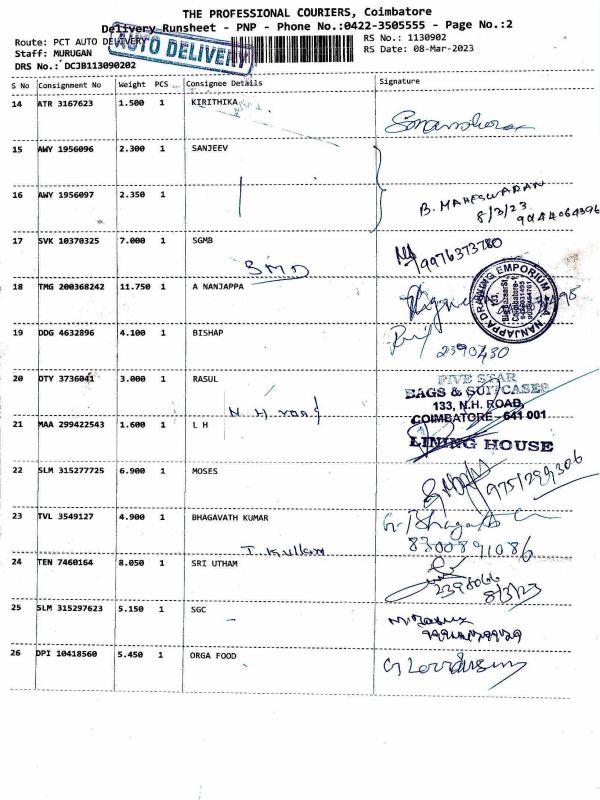 THE PROFESSIONAL COURIERS, Coimbatore
Delivery Runsheet - PNP - Phone No.:0422-3505555 - Page No.:2
Route: PCT AUTO DELIVERY
AUTO DELIVERY
RS No.: 1130902
Staff: MURUGAN
RS Date: 08-Mar-2023
DRS No.: DCJB113090202
S No Consignment No Weight PCS Consignee Details Signature
14 ATR 3167623 1.500 1 KIRITHIKA
15 AWY 1956096 2.300 1 SANJEEV
16 AWY 1956097 2.350 1
B. MAHESWARAN
8/3/23
9044064396
17 SVK 10370325 7.000 1 SGMB
9976373780
18 TMG 200368242 11.750 1 A NANJAPPA
NANJAPPA DRAWING EMPORIUM
19 DDG 4632896 4.100 1 BISHAP
2390430
20 DTY 3736041 3.000 1 RASUL
FIVE STAR
BAGS & SUITCASES
133, N.H. ROAD,
COIMBATORE - 641 001
N. H. road
21 MAA 299422543 1.600 1 L H
LINING HOUSE
22 SLM 315277725 6.900 1 MOSES
9751299306
23 TVL 3549127 4.900 1 BHAGAVATH KUMAR
8300891086
24 TEN 7460164 8.050 1 SRI UTHAM
2398066
8/3/23
25 SLM 315297623 5.150 1 SGC
26 DPI 10418560 5.450 1 ORGA FOOD